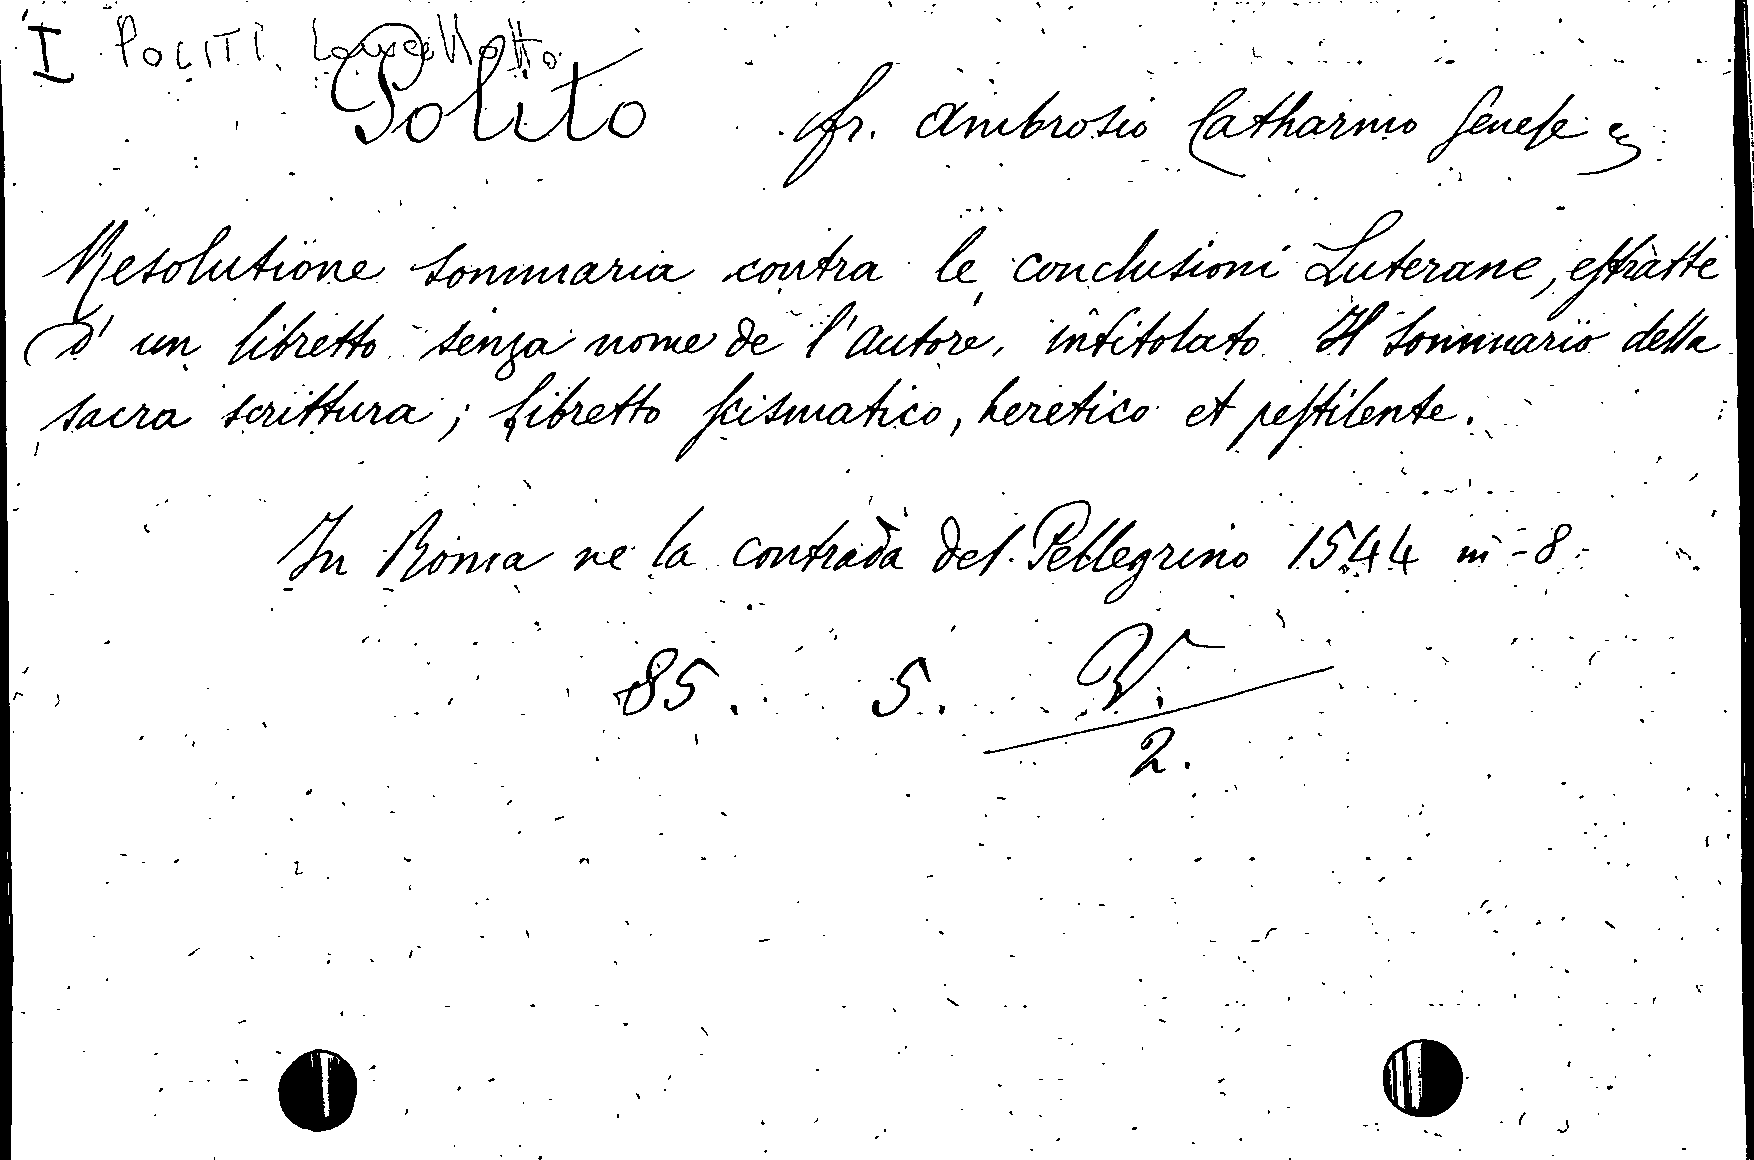 I POLITI. Lancellotto
Polito fr. Ambrosio Catharino Senese
Resolutione sommaria contra le conclusioni Luterane, estratte
d' un libretto senza nome de l'autore, intitolato Il sommario della
sacra scrittura; libretto scismatico, heretico et pestilente.
In Roma ne la contrada del Pellegrino 1544 in-8
85. 5. V.
2.